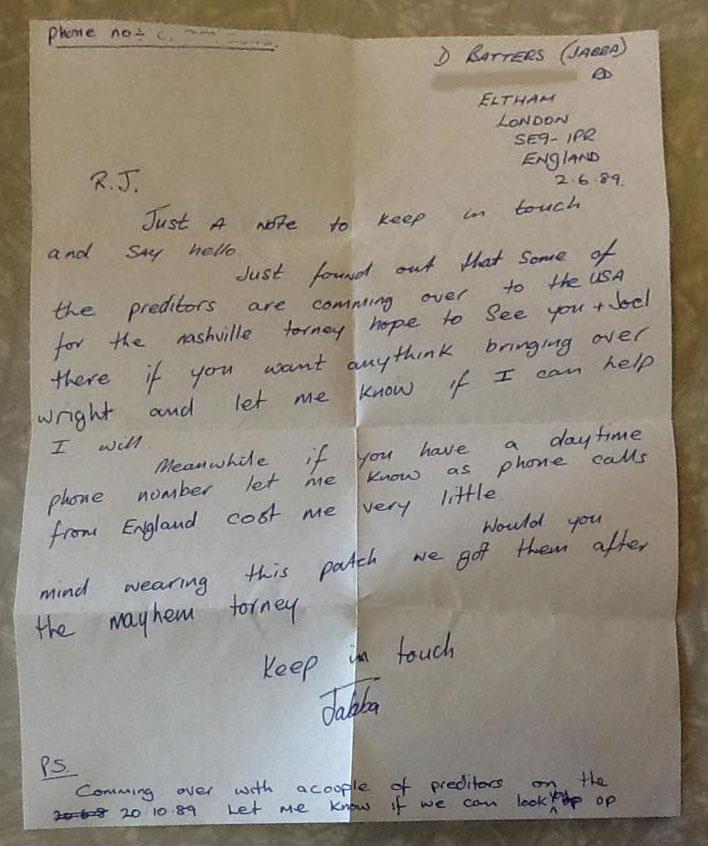 Phone no:
D BATTERS (JABBA)
RD
ELTHAM
LONDON
SE9-1PR
ENGLAND
2.6.89.
R.J.
Just A note to keep in touch
and say hello.
Just found out that some of
the preditors are comming over to the USA
for the nashville torney hope to see you + Joel
there if you want anythink bringing over
wright and let me know if I can help
I will.
Meanwhile if you have a daytime
phone number let me know as phone calls
from England cost me very little.
Would you
mind wearing this patch we got them after
the mayhem torney
Keep in touch
Jabba
PS.
Comming over with acoople of preditors on the
20.10.89 Let me know if we can look you op